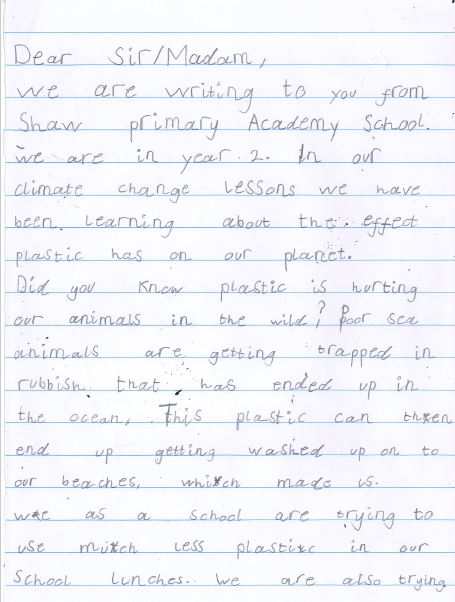 Dear Sir/Madam,
we are writing to you from
Shaw primary Academy School.
we are in year 2. In our
climate change lessons we have
been learning about the effect
plastic has on our planet.
Did you know plastic is hurting
our animals in the wild? Poor sea
animals are getting trapped in
rubbish that has ended up in
the ocean, This plastic can then
end up getting washed up on to
our beaches, which made us.
we as a school are trying to
use mutch less plastic in our
School lunches. we are also trying